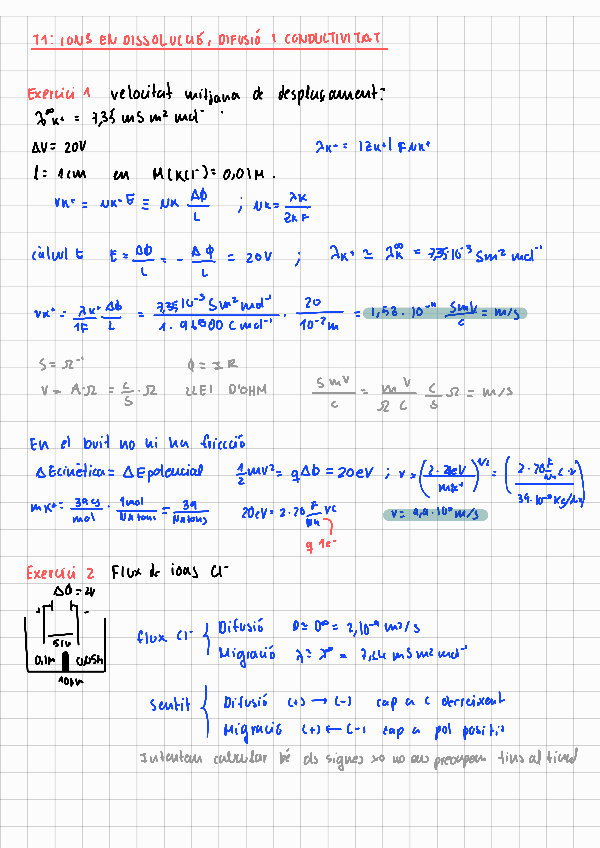 T1: IONS EN DISSOLUCIÓ, DIFUSIÓ I CONDUCTIVITAT
Exercici 1 velocitat mitjana de desplaçament:
λ∞K+ = 7,35 mS m² mol⁻
ΔV = 20V λK+ = |ZK+| F uK+
l = 1cm en M(KCl) = 0,01M.
vK+ = uK+ E ≡ uK Δϕ/L ; uK = λK/ZK F
càlcul E E = Δϕ/L = - Δϕ/L = 20V ; λK+ ≃ λ∞K = 7,35·10⁻³ Sm² mol⁻¹
vK+ = λK+/1F Δϕ/L = 7,35·10⁻³ Sm² mol⁻¹/1·96500 C mol⁻¹ · 20/10⁻² m = 1,52·10⁻⁴ SmV/C = m/s
S = Ω⁻¹ ϕ = I R
V = A·Ω = C/S · Ω LLEI D'OHM SmV/C = mV/ΩC C/S Ω = m/s
En el buit no hi ha fricció
ΔEcinètica = ΔEpotencial 1/2 mv² = qΔϕ = 20eV ; v = (2·20eV/mK+)^1/2 = (2·20 F/NA C·V/39·10⁻³ Kg/NA)
mK+ = 39g/mol · 1mol/NA ions = 39/NA ions 20eV = 2·20 F/NA VC v = 9,9·10³ m/s
q 1e⁻
Exercici 2 Flux de ions Cl⁻
Δϕ = 2V
+ -
0,1M 0,05M
flux Cl⁻ Difusió D ≃ D∞ = 2·10⁻⁹ m²/s
Migració λ ≃ λ∞ = 7,64 mS m² mol⁻¹
sentit Difusió (+) → (-) cap a c decreixent
Migració (+) ← (-) cap a pol positiu
Intentem calcular bé els signes no ens preocupem fins al final